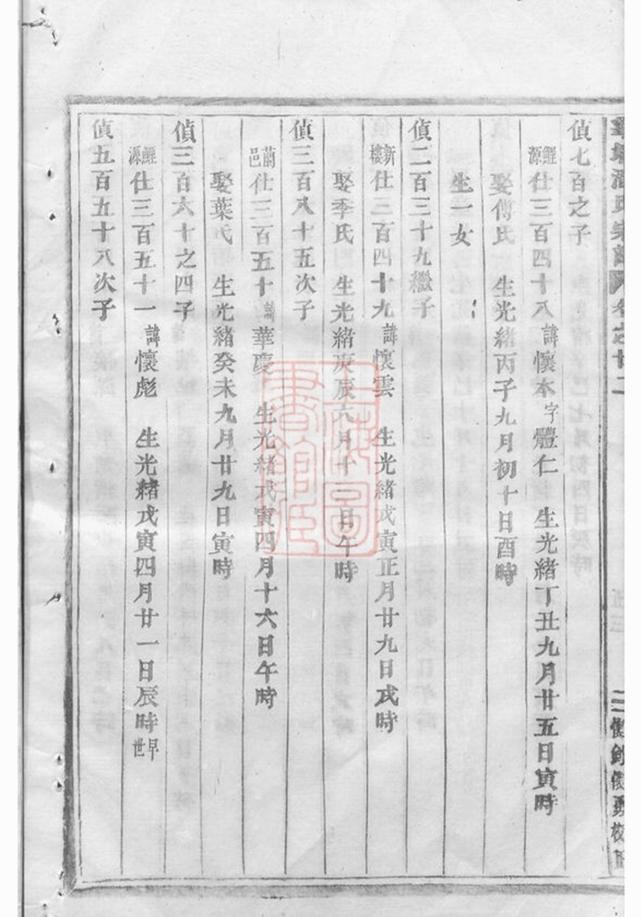 偵七百之子
鯉源仕三百四十八諱懷本字體仁 生光緒丁丑九月廿五日寅時
娶傅氏 生光緒丙子九月初十日酉時
生一女
偵二百三十九繼子
新樓仕三百四十九諱懷雲 生光緒戊寅正月廿九日戌時
娶季氏 生光緒庚辰六月十三日午時
偵三百八十五次子
蘭邑仕三百五十諱華慶 生光緒戊寅四月十六日午時
娶葉氏 生光緒癸未九月廿九日寅時
偵三百六十之四子
鯉源仕三百五十一諱懷彪 生光緒戊寅四月廿一日辰時早世
偵五百五十八次子